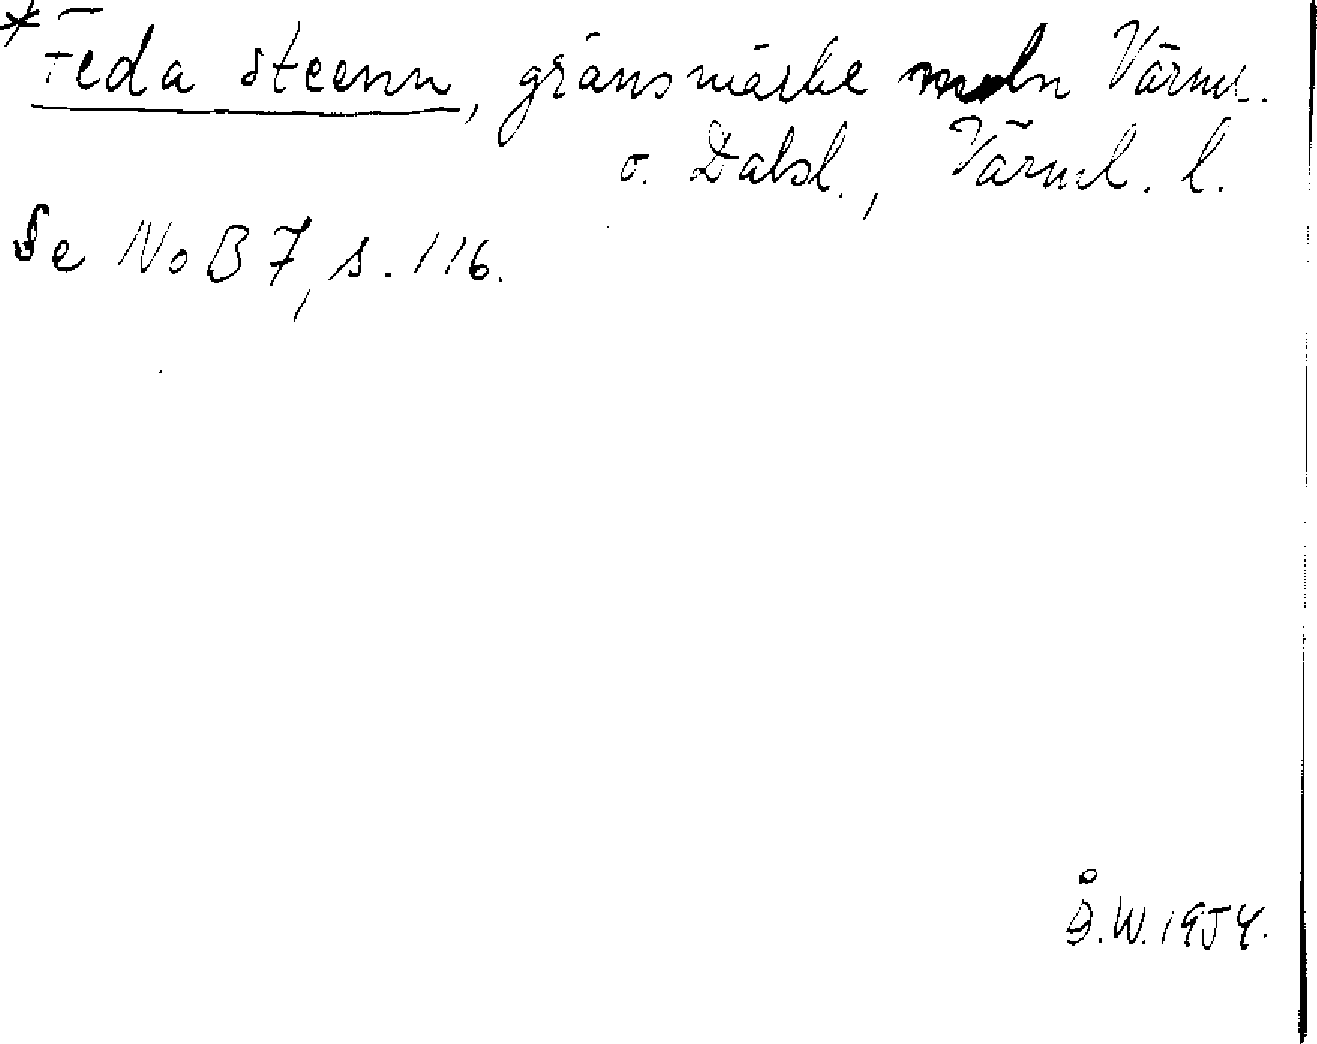 *Feda steenn, gränsmärke meln Värml.
o. Dalsl., Värml. l.
Se NoB 7, s. 116.
Å.W. 1954.